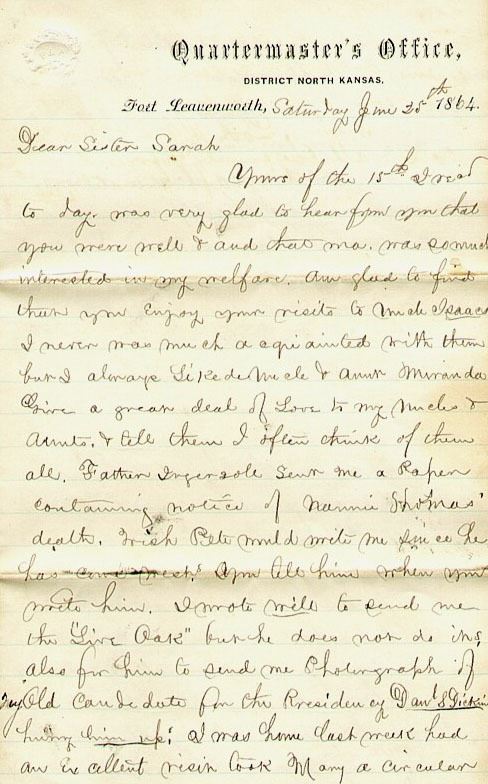 Quartermaster's Office,
DISTRICT NORTH KANSAS,
Fort Leavenworth, Saturday June 25th 1864.
Dear Sister Sarah
Yours of the 15th I recd
to day. was very glad to hear from you that
you were well & and that ma. was so much
interested in my welfare. Am glad to find
that you Enjoy your visits to Uncle Isaacs
I never was much acquainted with them
but I always Liked Uncle & Aunt Miranda
Give a great deal of Love to my Uncles &
Aunts. & tell them I often think of them
all. Father Ingersole Sent me a Paper
containing notice of Nannie Thomas'
death. Wish Pete would write me since he
has You tell him when you
write him. I wrote Will to send me
the "Live Oak" but he does not do it.
also for him to send me Photograph of
my Old Candidate for the Presidency Danl S Dickin
hurry him up. I was home last week had
an Excellent visit took Mary a circular